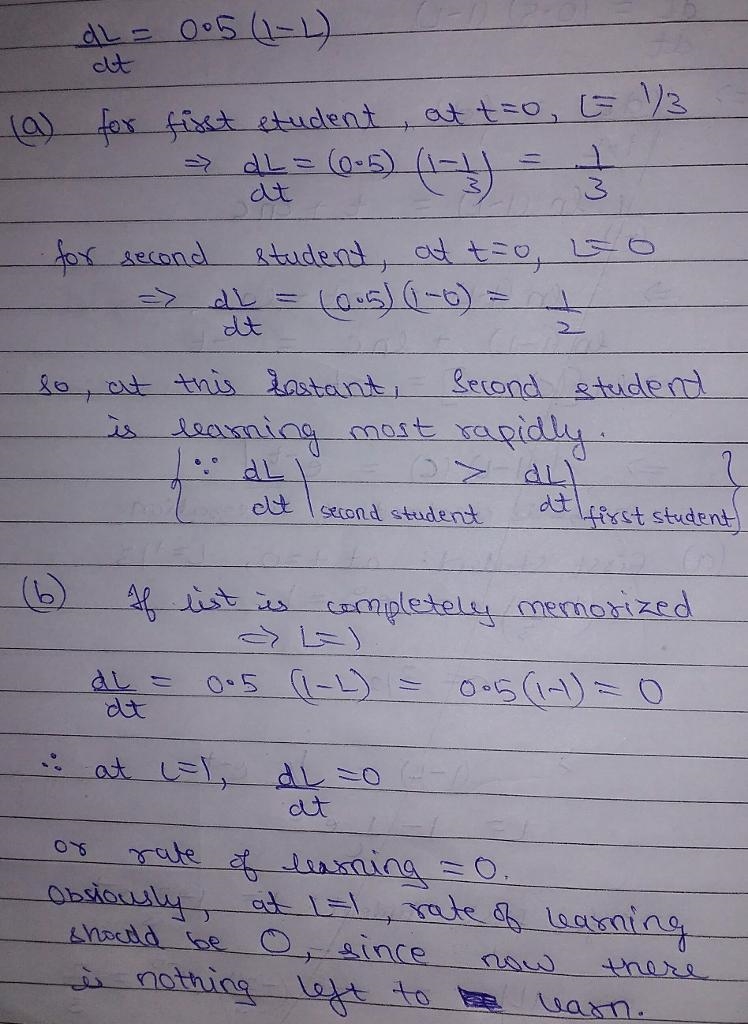 dL/dt = 0.5 (1-L)
(a) for first student, at t=0, L= 1/3
⇒ dL/dt = (0.5) (1-1/3) = 1/3
for second student, at t=0, L=0
⇒ dL/dt = (0.5) (1-0) = 1/2
so, at this instant, second student
is learning most rapidly.
{∵ dL/dt)second student > dL/dt)first student}
(b) If list is completely memorized
⇒ L=1
dL/dt = 0.5 (1-L) = 0.5(1-1) = 0
∴ at L=1, dL/dt =0
or rate of learning = 0.
Obviously, at L=1, rate of learning
should be 0, since now there
is nothing left to learn.